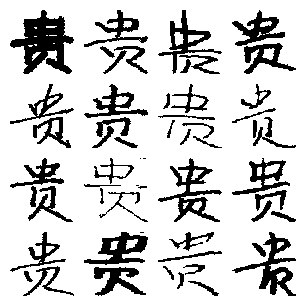 贵贵贵贵
贵贵贵贵
贵贵贵贵
贵贵贵贵